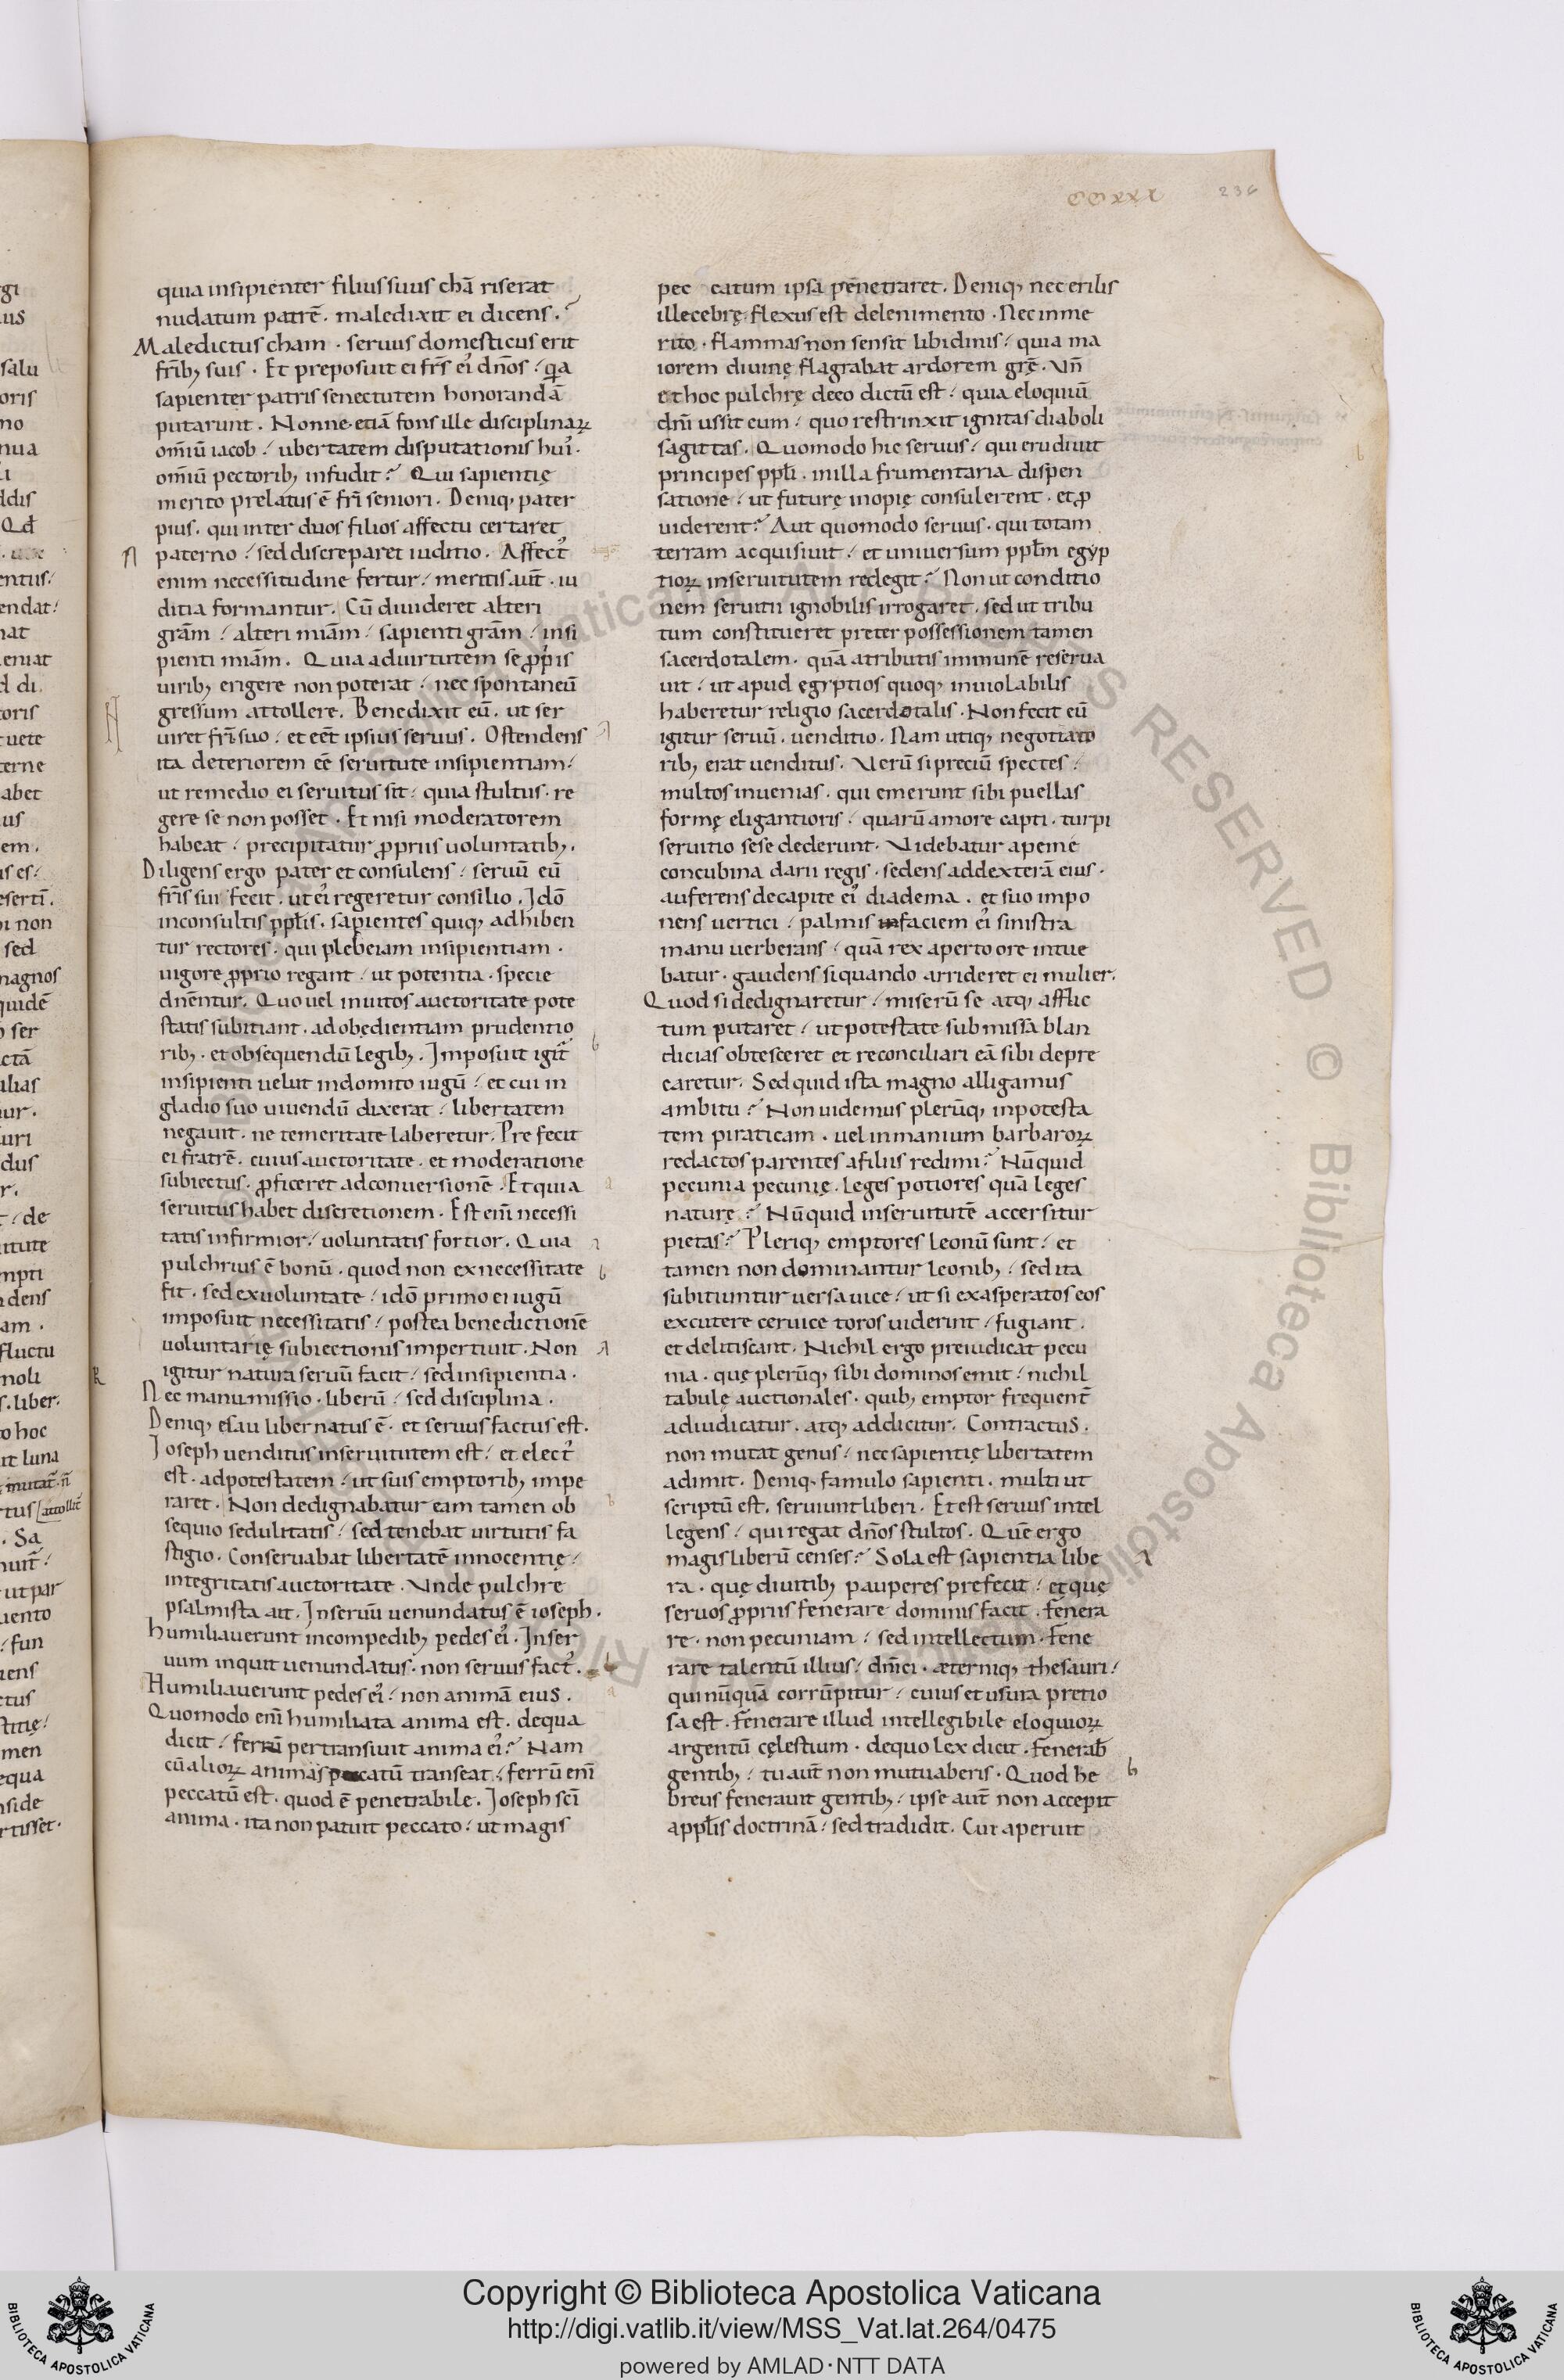 CCXXX
236
quia insipienter filius suus chā riserat
nudatum patrē. maledixit ei dicens.
Maledictus cham. seruus domesticus erit
fr̄ibꝫ suis. Et preposuit ei fr̄s ei᾽ dn̄os / qa
sapienter patris senectutem honorandā
putarunt. Nonne etiā fons ille disciplinaꝝ
om̄iū iacob / ubertatem disputationis hui᾽.
om̄iū pectoribꝫ infudit? Qui sapientię
merito prelatus ē fr̄i seniori. Deniqꝫ pater
pius. qui inter duos filios affectu certaret
paterno / sed discreparet iuditio. Affect᾽
enim necessitudine fertur / meritis aūt. iu
ditia formantur. Cū diuideret alteri
grām / alteri miām / sapienti grām / insi
pienti miām. Quia ad uirtutem se ꝓpriis
uiribꝫ erigere non poterat / nec spontaneū
gressum attollere. Benedixit eū. ut ser
uiret fr̄i suo / et eēt ipsius seruus. Ostendens
ita deteriorem eē seruitute insipientiam /
ut remedio ei seruitus sit / quia stultus. re
gere se non posset. Et nisi moderatorem
habeat / precipitatur ꝓpriis uoluntatibꝫ.
Diligens ergo pater et consulens / seruū eū
fr̄is sui fecit. ut ei᾽ regeretur consilio. Idō
inconsultis ppl̄is. sapientes quiqꝫ adhiben
tur rectores. qui plebeiam insipientiam.
uigore ꝓprio regant / ut potentia. specie
dn̄entur. Quo uel inuitos auctoritate pote
statis subitiant. ad obędientiam prudentio
ribꝫ. et obsequendū legibꝫ. Imposuit igit᾽
insipienti uelut indomito iugū / et cui in
gladio suo uiuendū dixerat / libertatem
negauit. ne temeritate laberetur. Prefecit
ei fratrē. cuius auctoritate. et moderatione
subiectus. ꝓficeret ad conuersionē. Et quia
seruitus habet discretionem. Est eni᾽ necessi
tatis infirmior / uoluntatis fortior. Quia
pulchrius ē bonū. quod non ex necessitate
fit. sed ex uoluntate / idō primo ei iugū
imposuit necessitatis / postea benedictionē
uoluntarię subiectionis impertiuit. Non
igitur natura seruū facit / sed insipientia.
Nec manumissio. liberū / sed disciplina.
Deniqꝫ esau liber natus ē. et seruus factus est.
Ioseph uenditus in seruitutem est / et elect᾽
est. ad potestatem / ut suis emptoribꝫ impe
raret. Non dedignabatur eam tamen ob
sequio sedulitatis / sed tenebat uirtutis fa
stigio. Conseruabat libertatē innocentię /
integritatis auctoritate. Vnde pulchre
psalmista ait. In seruū uenundatus ē ioseph.
humiliauerunt in compedibꝫ pedes ei᾽. In ser
uum inquit uenundatus. non seruus fact᾽.
Humiliauerunt pedes ei᾽ / non animā eius.
Quomodo eni᾽ humiliata anima est. de qua
dicit / ferrū pertransiuit anima ei᾽? Nam
cū alioꝝ animas peccatū transeat / ferrū eni᾽
peccatū est. quod ē penetrabile. Ioseph sc̄i
anima. ita non patuit peccato / ut magis
pec catum ipsā penetraret. Deniqꝫ nec erilis
illecebrę flexus est delenimento. Nec inme
rito. flammas non sensit libidinis / quia ma
iorem diuinę flagrabat ardorem grę̄. Vn̄
et hoc pulchrę de eo dictū est / quia eloquiū
dn̄i ussit eum / quo restrinxit ignitas diaboli
sagittas. Quomodo hic seruus / qui erudiuit
principes ppl̄i. in illa frumentaria dispen
satione / ut futurę inopię consulerent. et ꝓ
uiderent? Aut quomodo seruus. qui totam
terram acquisiuit / et uniuersum ppl̄m egyp
tioꝝ in seruitutem redegit? Non ut conditio
nem seruitii ignobilis irrogaret. sed ut tribu
tum constitueret preter possessionem tamen
sacerdotalem. quā a tributis immunē reserua
uit / ut apud egyptios quoqꝫ inuiolabilis
haberetur religio sacerdotalis. Non fecit eū
igitur seruū. uenditio. Nam utiqꝫ negotiato
ribꝫ erat uenditus. Verū si preciū spectes /
multos inuenias. qui emerunt sibi puellas
formę eligantioris / quarū amore capti. turpi
seruitio sese dederunt. Videbatur apemē
concubina darii regis. sedens ad dexterā eius.
auferens de capite ei᾽ diadema. et suo impo
nens uertici / palmis in faciem ei᾽ sinistra
manu uerberans / quā rex aperto ore intue
batur. gaudens si quando arrideret ei mulier.
Quod si dedignaretur / miserū se atqꝫ afflic
tum putaret / ut potestate submissa blan
dicias obtesceret et reconciliari eā sibi depre
caretur. Sed quid ista magno alligamus
ambitu? Non uidemus plerūqꝫ in potesta
tem piraticam. uel inmanium barbaroꝝ
redactos parentes a filiis redimi? Nūquid
pecunia pecunię. leges potiores quā leges
naturę? Nūquid in seruitutē accersitur
pietas? Pleriqꝫ emptores leonū sunt / et
tamen non dominantur leonibꝫ / sed ita
subitiuntur uersa uice / ut si exasperatos eos
excutere ceruice toros uiderint / fugiant.
et delitiscant. Nichil ergo preiudicat pecu
nia. quę plerūqꝫ sibi dominos emit / nichil
tabulę auctionales. quibꝫ emptor frequent᾽
adiudicatur. atqꝫ addicitur. Contractus.
non mutat genus / nec sapientię libertatem
adimit. Deniqꝫ famulo sapienti. multi ut
scriptū est. seruiunt liberi. Et est seruus intel
legens / qui regat dn̄os stultos. Quē ergo
magis liberū censes? Sola est sapientia libe
ra. quę diuitibꝫ pauperes prefecit / et quę
seruos ꝓpriis fenerare dominis facit. fenera
re. non pecuniam / sed intellectum. Fene
rare talentū illius / dn̄ici. æterniqꝫ thesauri /
qui nūquā corrūpitur / cuius et usura pretio
sa est. Fenerare illud intellegibile eloquioꝝ
argentū cęlestium. de quo lex dicit. Fenerab̄
gentibꝫ / tu aūt non mutuaberis. Quod he
breus fenerauit gentibꝫ / ipse aūt non accepit
appl̄is doctrinā / sed tradidit. Cui aperuit
Copyright © Biblioteca Apostolica Vaticana
http://digi.vatlib.it/view/MSS_Vat.lat.264/0475
powered by AMLAD·NTT DATA
BIBLIOTECA APOSTOLICA VATICANA
BIBLIOTECA APOSTOLICA VATICANA